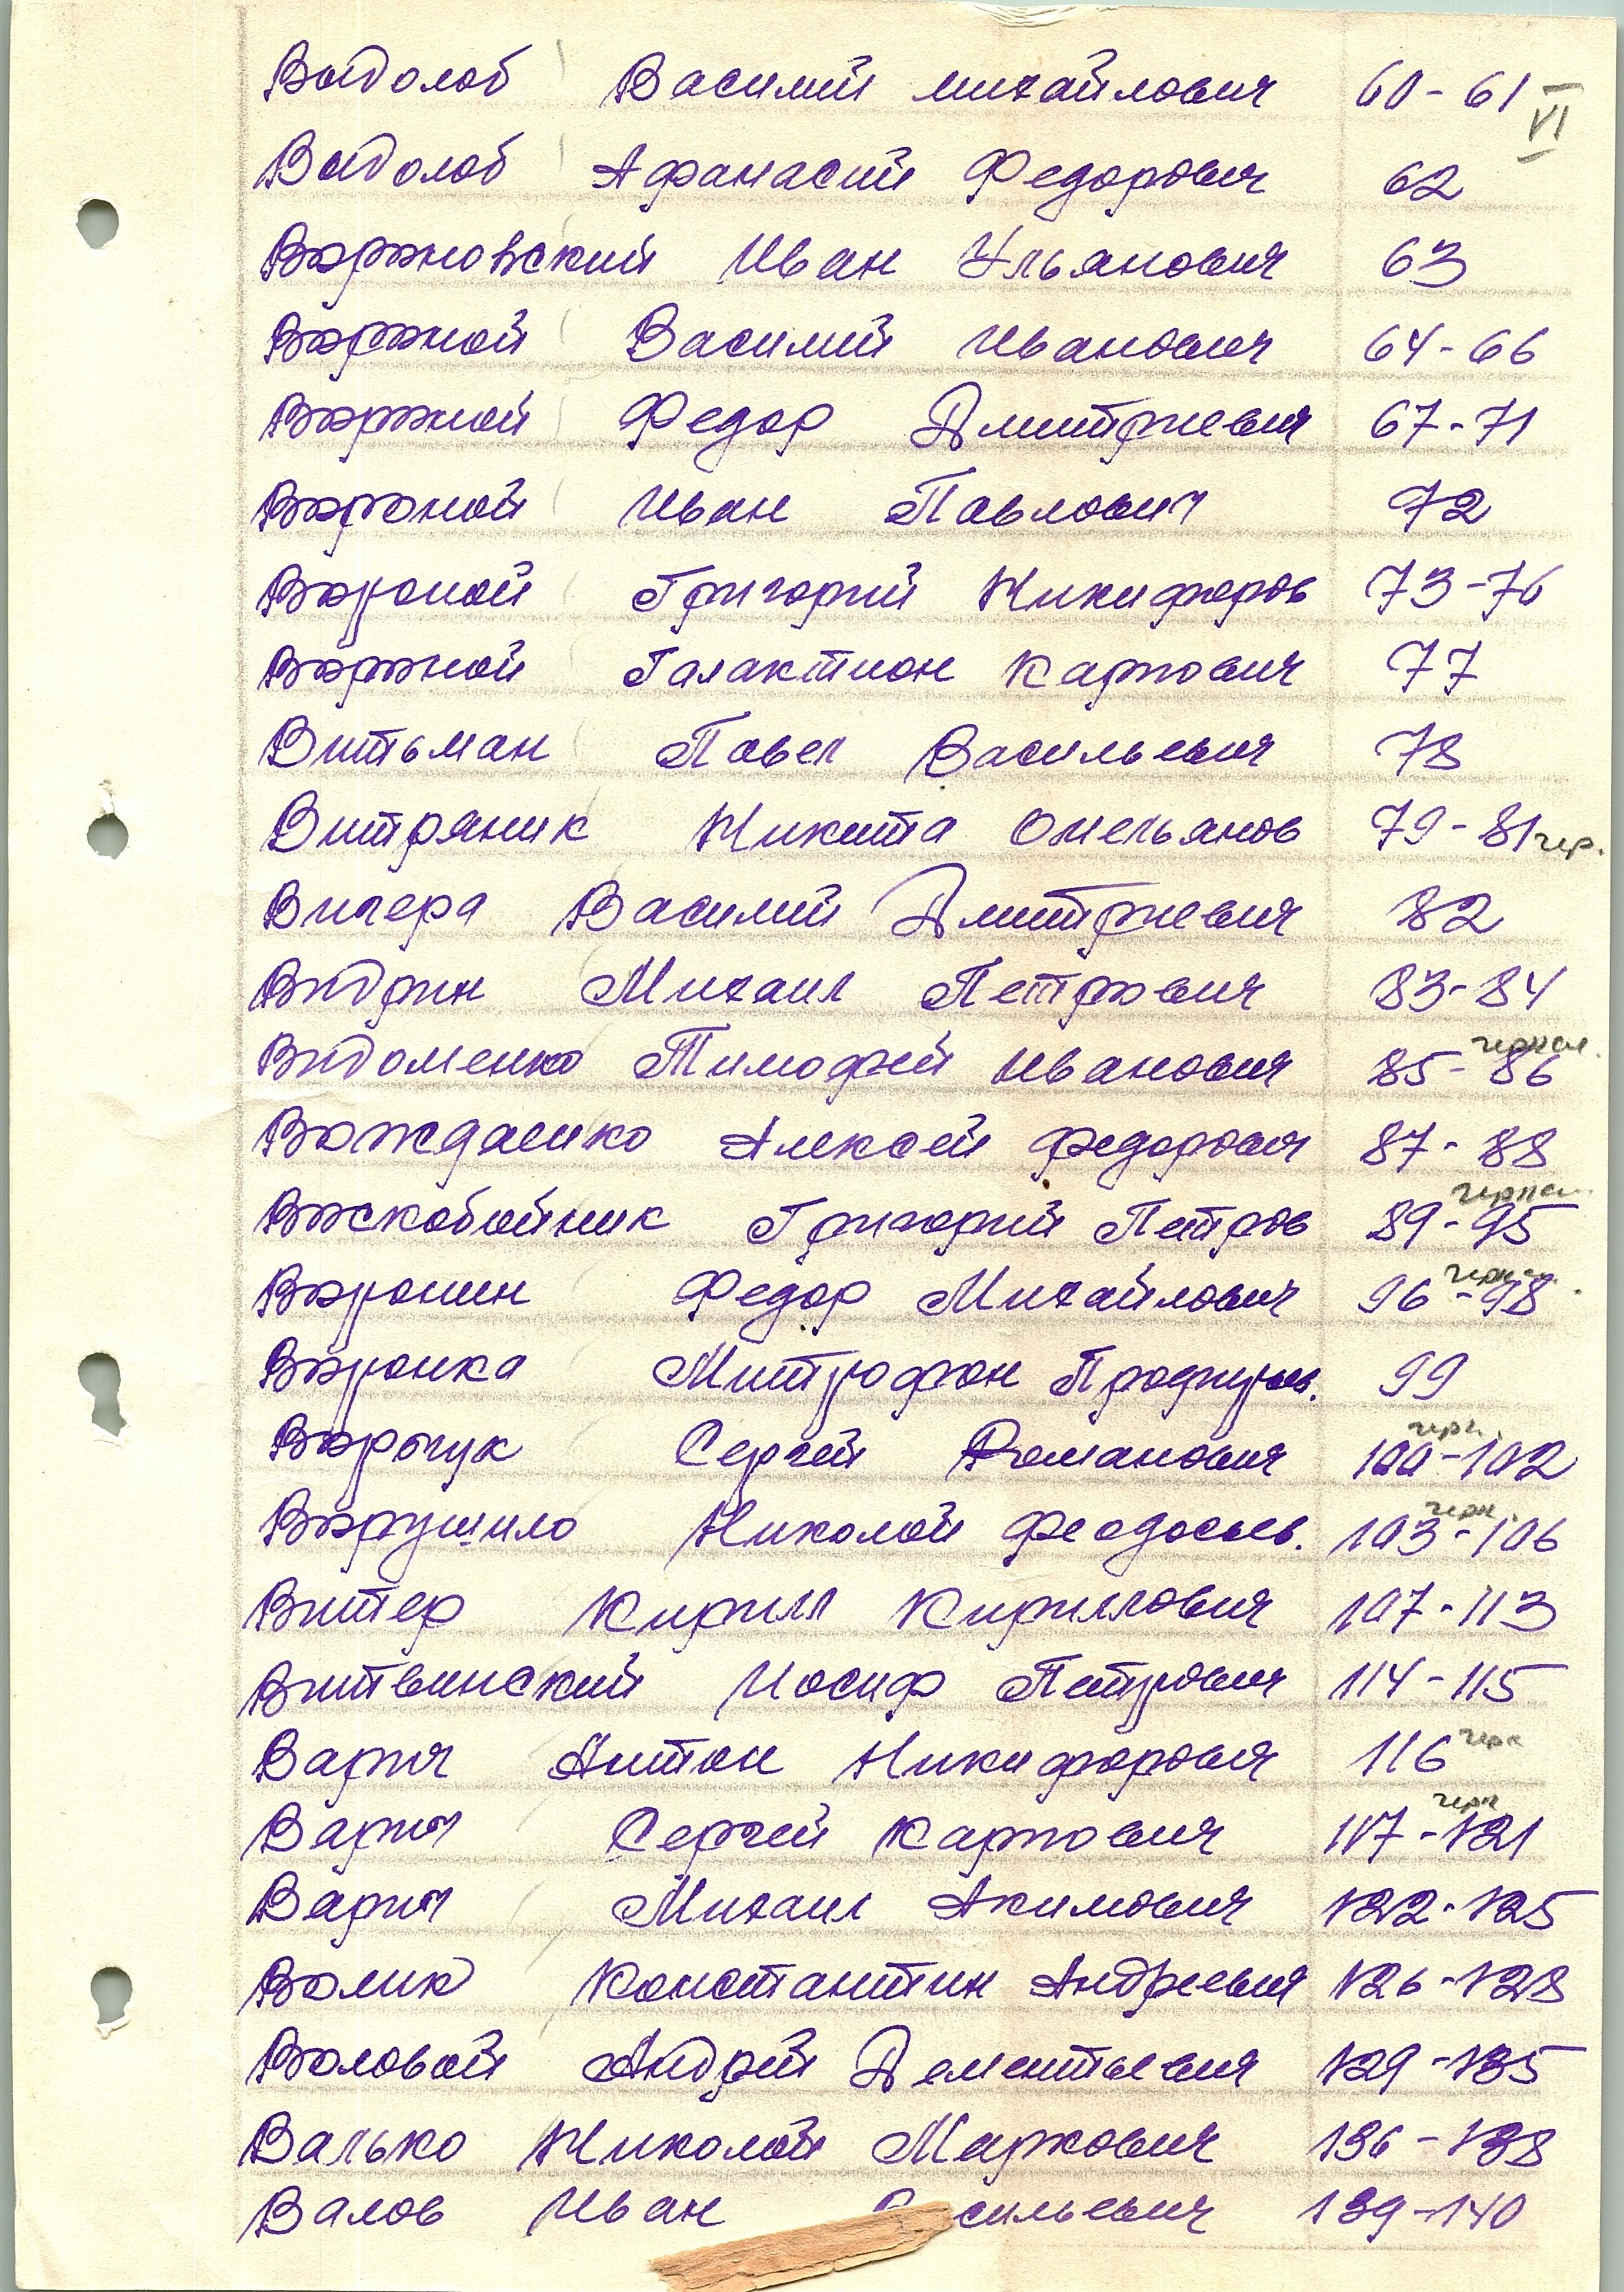 Видолоб Василий михайлович 60-61 VI
Видолоб Афанасий Федорович 62
Вороновский Иван Ульянович 63
Вороной Василий Иванович 64-66
Вороной Федор Дмитриевич 67-71
Вороной Иван Павлович 72
Вороной Григорий Никифоров 73-76
Вороной Галактион Карпович 77
Витьман Павел Васильевич 78
Витряник Никита Омельянов 79-81 чер.
Вичера Василий Дмитриевич 82
Видрин Михаил Петрович 83-84
Видоменко Тимофей Иванович 85-86
Вождаенко Алексей Федорович 87-88
Воскобойник Григорий Петров 89-95
Воронин Федор Михайлович 96-98
Воронка Митрофан 99
Ворчук Сергей Романович 100-102 черн.
Ворушило Николай Феодосьев. 103-106 черн.
Витер Кирилл Кириллович 107-113
Витвинский Иосиф Петрович 114-115
Варич Антон Никифорович 116 черн
Варич Сергей Карпович 117-121 черн
Варич Михаил Акимович 122-125
Волик Константин Андреевич 126-128
Воловой Андрей Дементьевич 129-135
Валько Николай Маркович 136-138
Валов Иван сильевич 139-140